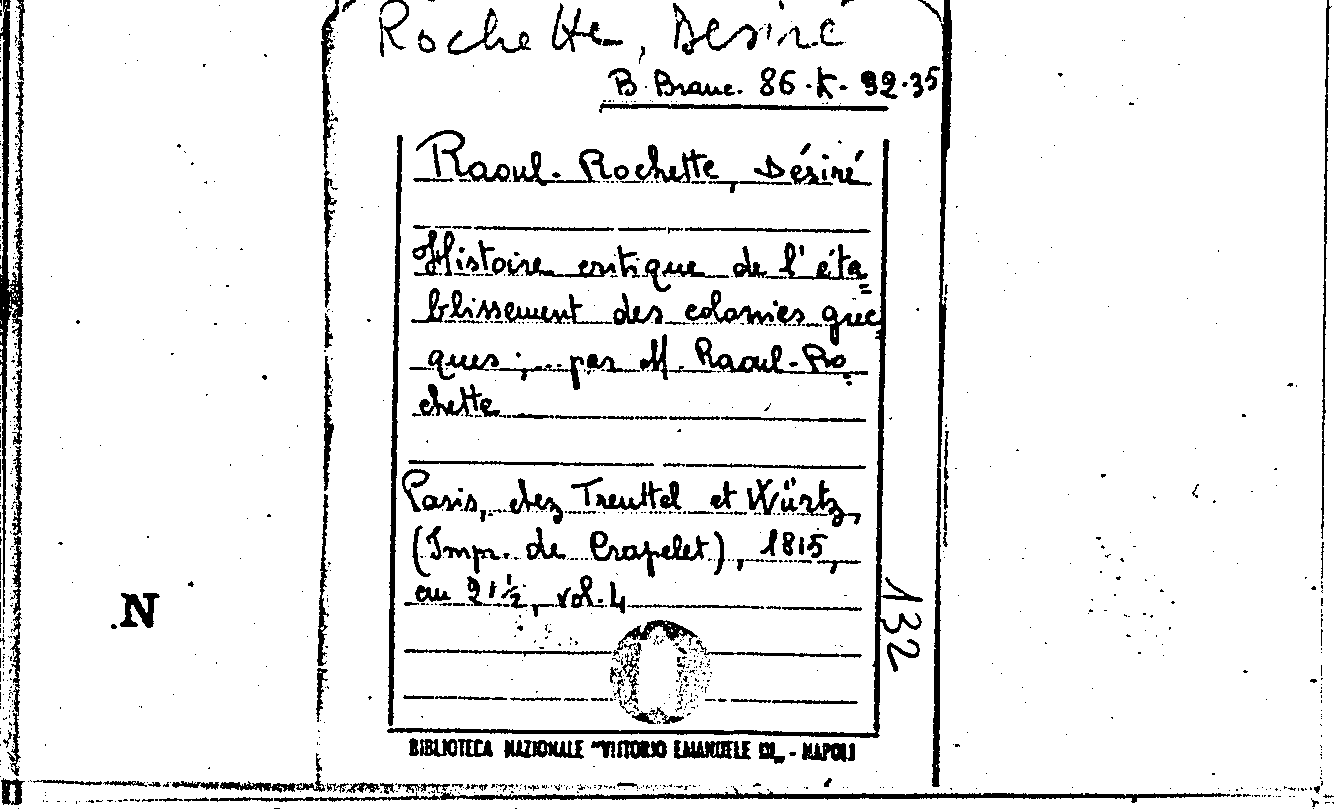 Rochette, Désiré
B. Branc. 86-K-92.35
Raoul-Rochette, Désiré
Histoire critique de l'éta=
blissement des colonies grec=
ques ; ... par M. Raoul-Ro=
chette
Paris, chez Treuttel et Würtz,
(Impr. de Crapelet), 1815,
cm 21½, vol. 4
132
.N
BIBLIOTECA NAZIONALE "VITTORIO EMANUELE III" - NAPOLI